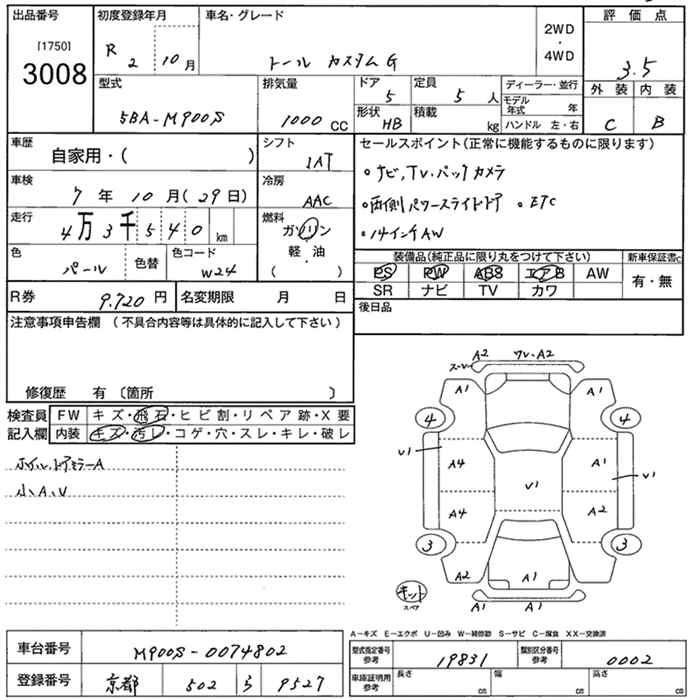 出品番号 初度登録年月 車名・グレード 2WD・4WD 評価点
[1750]
3008 R2 10月 トール カスタムG 3.5
型式 排気量 ドア 5 定員 5人 ディーラー・並行 外装 内装
5BA-M900S 1000cc 形状 HB 積載 kg モデル年式 年 C B
ハンドル 左・右
車歴 自家用・( ) シフト IAT セールスポイント(正常に機能するものに限ります)
車検 7年10月(29日) 冷房 AAC ・ナビ,TV,バックカメラ
走行 4万3千540km 燃料 ガソリン・軽油 ( ) ・両側パワースライドドア ・ETC
・14インチAW
色 パール 色替 色コード W24
装備品(純正品に限り丸をつけて下さい) 新車保証書
PS PW ABS エアB AW 有・無
SR ナビ TV カワ
R券 9.720円 名変期限 月 日 後日品
注意事項申告欄 (不具合内容等は具体的に記入して下さい)
修復歴 有 〔箇所 〕
検査員 FW キズ・飛石・ヒビ割・リペア跡・X要
記入欄 内装 キズ・汚レ・コゲ・穴・スレ・キレ・破レ
ホイル・ドアミラーA
小A,U
A2 A2
A1 A1
4 4
U1 A4 A1 U1
U1
A4 A2
3 3
A2 A1
キット
スペア
A1 A1
A-キズ E-エクボ U-凹み W-補修跡 S-サビ C-腐食 XX-交換済
車台番号 M900S-0074802
型式指定番号 参考 19831 類別区分番号 参考 0002
登録番号 京都 502 ら 9527
車庫証明用 参考 長さ cm 幅 cm 高さ cm